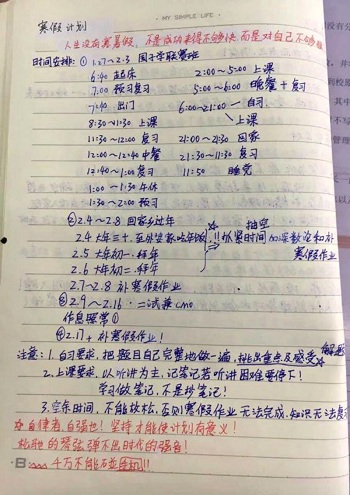 · MY SIMPLE LIFE ·
寒假 计划
人生没有寒暑假，不是成功来得不够快，而是对自己不够狠
时间安排: ① 1.27~2.3 国子学联赛班
6:40 起床 2:00~5:00 上课
7:00 预习复习 5:00~6:00 晚餐+复习
7:40 出门 6:00~21:00 一自习
8:30~11:30 上课 上课
11:30~12:00 复习 21:00~21:30 回家
12:00~12:40 中餐 21:30~11:30 复习
12:40~1:00 复习 11:50 睡觉
1:00~1:30 午休
1:30~2:00 预习
② 2.4~2.8 回家乡过年 抽空
2.4 大年三十, !!抓紧时间
2.5 大年初一 拜年 寒假作业
2.6 大年初二 拜年
2.7~2.8 补寒假作业
③ 2.9~2.16 · 二试兼cmo
作息照常①
④ 2.17+ 补寒假作业!
注意: 1. 自习要求, 把题目自己完整地做一遍, 挑出重点及感受
2. 上课要求, 以听讲为主, 记笔记若听讲困难要停下!
学习做笔记, 不是抄笔记!
3. 空余时间, 不能放松, 否则寒假作业无法完成, 知识无法复习
☆ 自律者, 自强也! 坚持才能使计划有意义!
松弛的琴弦弹不出时代的强音!
B 千万不能碰手机!!!